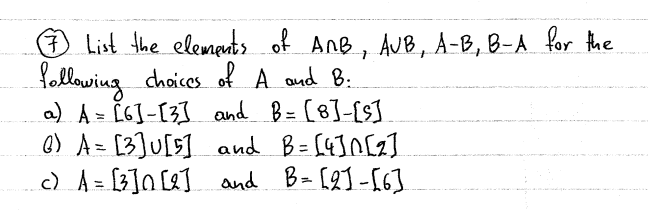 ⑦ List the elements of A∩B, A∪B, A-B, B-A for the
following choices of A and B:
a) A = [6]-[3] and B = [8]-[5]
b) A = [3]∪[5] and B = [4]∩[2]
c) A = [3]∩[2] and B = [2]-[6]